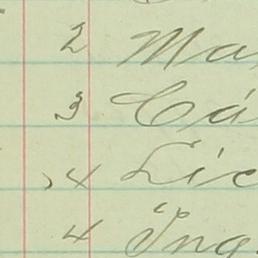 2 Ma
3 Cá
4 Lic
4 Ing.